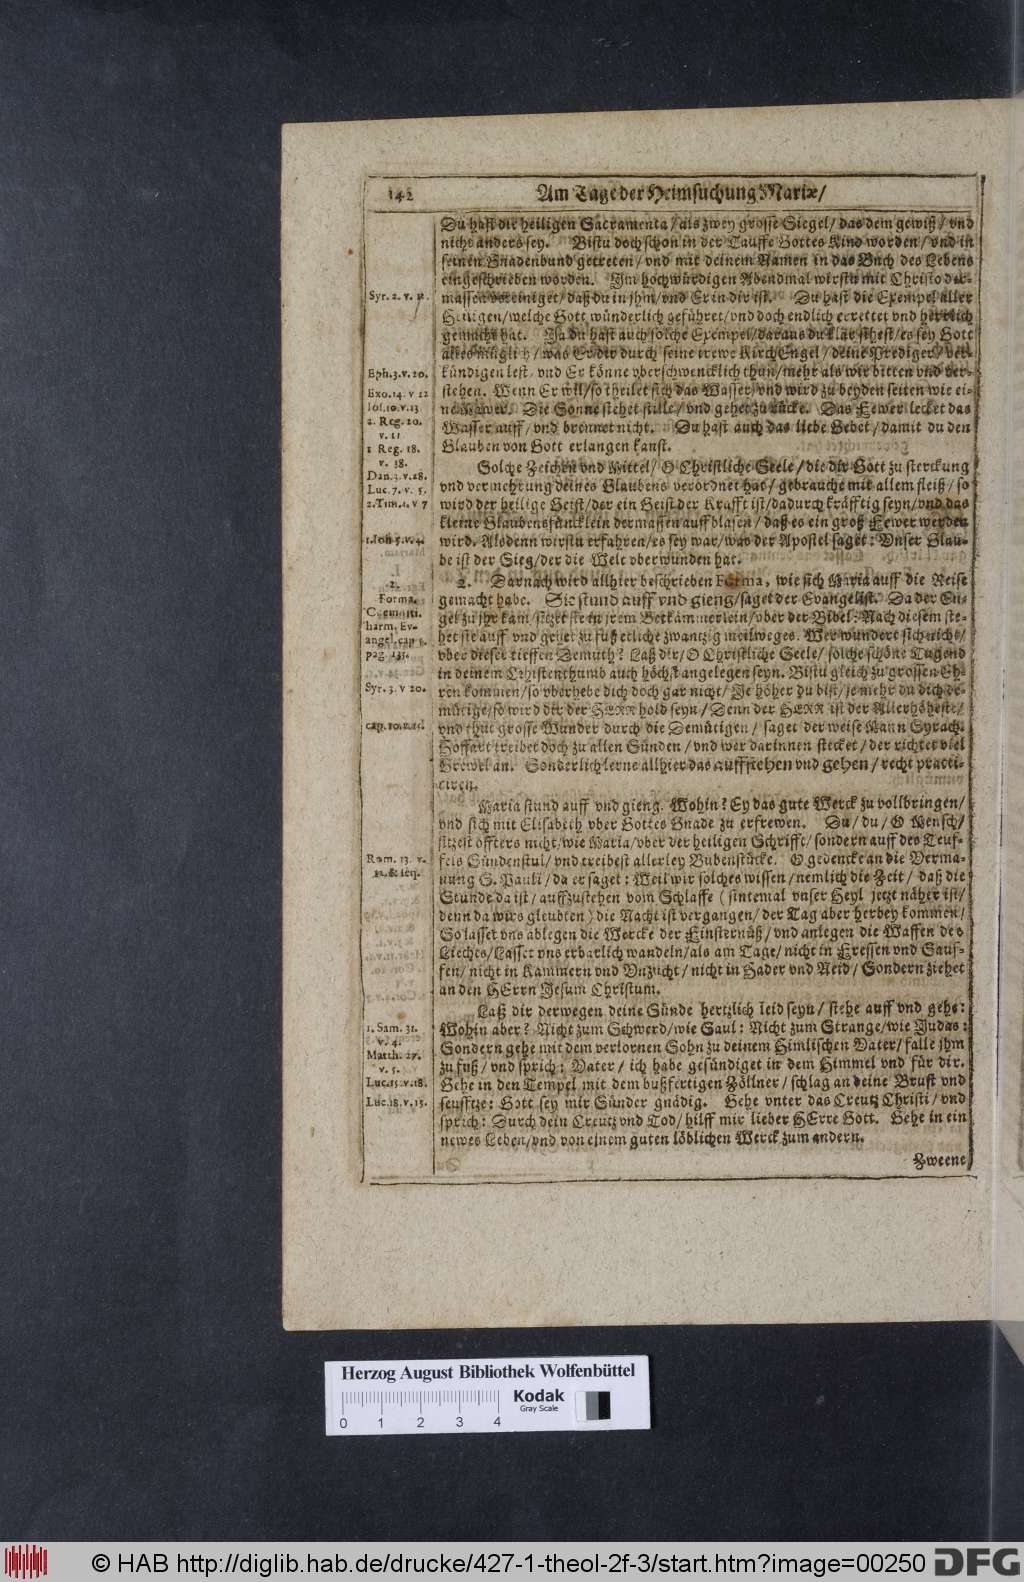 142
Am Tage der Heimsuchung Mariæ/
Du hast die heiligen Sacramenta/ als zwey grosse Siegel/ das dem gewiß/ vnd
nichts anders sey. Bistu doch schon in der Tauffe Gottes Kind worden/ vnd in
seinen Gnadenbund getreten/ vnd mit deinem Namen in das Buch des Lebens
eingeschrieben worden. Im hochwürdigen Abendmal wirstu mit Christo der-
Syr. 2. v. 11.
massen vereiniget/ daß du in jhm/ vnd Er in dir ist. Du hast die Exempel aller
Heiligen/ welche Gott wünderlich geführet/ vnd doch endlich errettet vnd herrlich
gemacht hat. Ja du hast auch solche Exempel/ daraus du klar sihest/ es sey Gott
alles müglich/ was Er dir durch seine trewe KirchEngel/ deine Prediger/ ver-
Eph. 3. v. 20.
kündigen lest/ vnd Er könne vberschwencklich thun/ mehr als wir bitten vnd ver-
Exo. 14. v 22
stehen. Wenn Er wil/ so theilet sich das Wasser/ vnd wird zu beyden seiten wie ei-
Ios. 10. v. 13
ne Mawer. Die Sonne stehet stille/ vnd gehet zu rücke. Das Fewer lecket das
2. Reg. 20.
v. 11
Wasser auff/ vnd brennet nicht. Du hast auch das liebe Gebet/ damit du den
1 Reg. 18.
v. 38.
Glauben von Gott erlangen kanst.
Solche Zeichen vnd Mittel/ O Christliche Seele/ die dir Gott zu sterckung
Dan. 3. v. 28.
vnd vermehrung deines Glaubens verordnet hat/ gebrauche mit allem fleiß/ so
Luc. 7. v. 5.
2. Tim. 1. v 7
wird der heilige Geist/ der ein Geist der Krafft ist/ dadurch kräfftig seyn/ vnd das
kleine Glaubensfüncklein dermassen auffblasen/ daß es ein groß Fewer werden
1. Ioh 5. v. 4.
wird. Alsdenn wirstu erfahren/ es sey war/ was der Apostel saget: Vnser Glau-
be ist der Sieg/ der die Welt vberwunden hat.
2.
Forma.
2. Darnach wird allhier beschrieben Forma, wie sich Maria auff die Reise
gemacht habe. Sie stund auff vnd gieng/ saget der Evangelist. Da der En-
harm. Ev-
angel. cap 3.
pag. 135.
gel zu jhr kam/ sitzet sie in jrem Betkämmerlein/ vber der Bibel: Nach diesem ste-
het sie auff vnd gehet zu fuß etliche zwantzig meilweges. Wer wundert sich nicht/
vber dieser tieffen Demuth? Laß dir/ O Christliche Seele/ solche schöne Tugend
in deinem Christenthumb auch höchst angelegen seyn. Bistu gleich zu grossen Eh-
Syr. 3. v 20.
ren kommen/ so vberhebe dich doch gar nicht/ Je höher du bist/ je mehr du dich de-
mütige/ so wird dir der HERR hold seyn/ Denn der HERR ist der Allerhöheste/
cap. 10. v. 15.
vnd thut grosse Wunder durch die Demütigen/ saget der weise Mann Syrach.
Hoffart treibet doch zu allen Sünden/ vnd wer darinnen stecket/ der richtet viel
Grewel an. Sonderlich lerne allhier das auffstehen vnd gehen/ recht practi-
ciren.
Maria stund auff vnd gieng. Wohin? Ey das gute Werck zu vollbringen/
vnd sich mit Elisabeth vber Gottes Gnade zu erfrewen. Du/ du/ O Mensch/
sitzest öffters nicht/ wie Maria/ vber der heiligen Schrifft/ sondern auff des Teuf-
Rom. 13. v.
12. & seq.
fels Sündenstul/ vnd treibest allerley Bubenstücke. O gedencke an die Verma-
nung S. Pauli/ da er saget: Weil wir solches wissen/ nemlich die Zeit/ daß die
Stunde da ist/ auffzustehen vom Schlaffe (sintemal vnser Heyl jetzt näher ist/
denn da wirs gleubten) die Nacht ist vergangen/ der Tag aber herbey kommen/
So lasset vns ablegen die Wercke der Finsternüß/ vnd anlegen die Waffen des
Liechtes/ Lasset vns erbarlich wandeln/ als am Tage/ nicht in Fressen vnd Sauf-
fen/ nicht in Kammern vnd Vnzucht/ nicht in Hader vnd Neid/ Sondern ziehet
an den HErrn Jesum Christum.
Laß dir derwegen deine Sünde hertzlich leid seyn/ stehe auff vnd gehe:
1. Sam. 31.
v. 4.
Wohin aber? Nicht zum Schwerd/ wie Saul: Nicht zum Strange/ wie Judas:
Matth. 27.
v. 5.
Sondern gehe mit dem verlornen Sohn zu deinem Himlischen Vater/ falle jhm
zu fuß/ vnd sprich: Vater/ ich habe gesündiget in dem Himmel vnd für dir.
Luc. 15. v. 18.
Gehe in den Tempel mit dem bußfertigen Zöllner/ schlag an deine Brust vnd
Luc. 18. v. 13.
seufftze: Gott sey mir Sünder gnädig. Gehe vnter das Creutz Christi/ vnd
sprich: Durch dein Creutz vnd Tod/ hilff mir lieber HErre Gott. Gehe in ein
newes Leben/ vnd von einem guten löblichen Werck zum andern.
Zweene
Herzog August Bibliothek Wolfenbüttel
0 1 2 3 4
Kodak
Gray Scale
© HAB http://diglib.hab.de/drucke/427-1-theol-2f-3/start.htm?image=00250
DFG